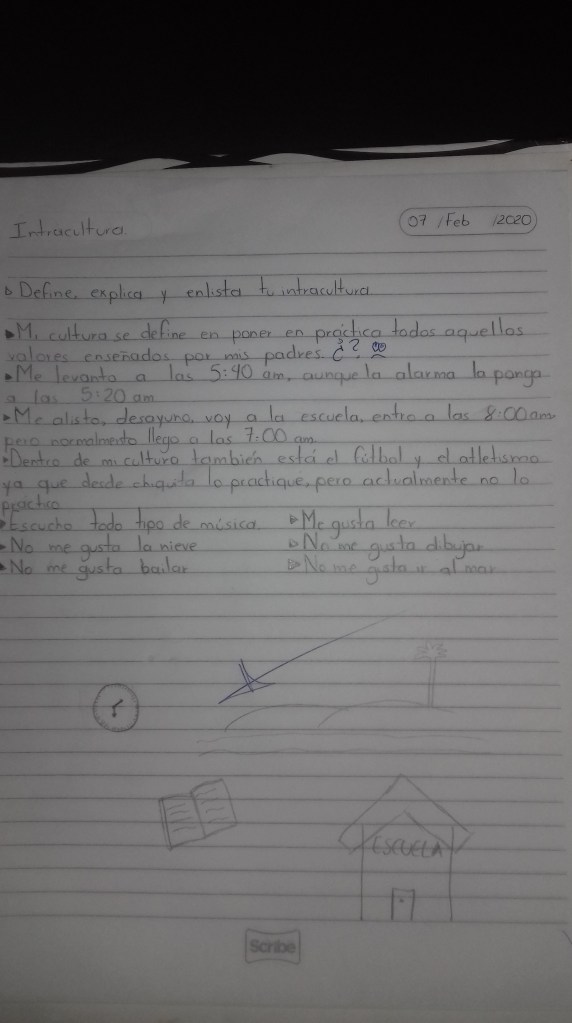 Intracultura
07 / Feb / 2020
Define, explica y enlista tu intracultura
Mi cultura se define en poner en práctica todos aquellos
valores enseñados por mis padres. ¿?
Me levanto a las 5:40 am, aunque la alarma la ponga
a las 5:20 am
Me alisto, desayuno, voy a la escuela, entro a las 8:00 am
pero normalmente llego a las 7:00 am
Dentro de mi cultura también está el fútbol y el atletismo
ya que desde chiquita lo practique, pero actualmente no lo
practico
Escucho todo tipo de música
Me gusta leer
No me gusta la nieve
No me gusta dibujar
No me gusta bailar
No me gusta ir al mar
ESCUELA
Scribe